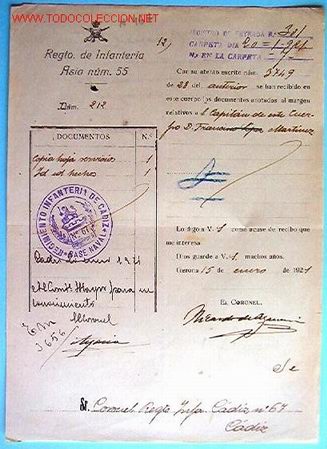 todocoleccion.net
REGISTRO DE ENTRADA N.º 381
CARPETA DIA 20=1=921
Nº EN LA CARPETA
Regto. de Infantería
Asia núm. 55
Núm. 212
Con su atento escrito núm. 5749
de 23 del anterior se han recibido en
este cuerpo los documentos anotados al margen
relativos a l Capitan de este Cuer-
po D. Francisco Martinez
DOCUMENTOS N.º
Copia hoja servicios 1
Id. id. hechos 1
REGIMIENTO INFANTERIA DE CADIZ
Nº 67
BASE NAVAL
Lo digo a V.S. como acuse de recibo que
me interesa
Dios guarde a V.S. muchos años.
Gerona 15 de enero de 1921
EL CORONEL,
Cadiz 20 enero 1921
Al Comte Mayor para su
conocimiento
El Coronel
3656
Ricardo de
Sr. Coronel Regto Infa Cádiz nº 67
Cádiz